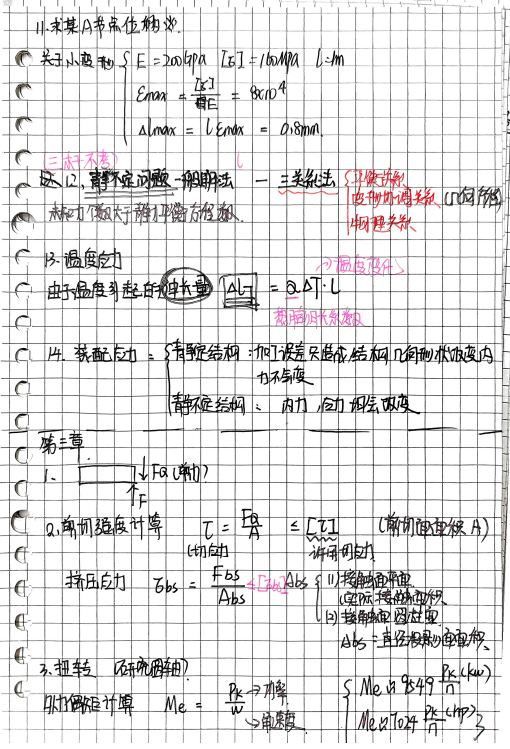 11. 求某A节点位移
关于小变形 { E = 200Gpa [σ] = 160MPa l=1m
εmax = [σ]/E = 8×10⁴
Δlmax = l εmax = 0.8mm.
(二本不考)
12. 静不定问题一般解法 — 三关系法 { 平衡关系
变形协调关系 (几何方程)
物理关系
未知力个数大于静力平衡方程数.
13. 温度应力
→温度变化
由于温度引起的伸长量 Δl = αΔT·l
热膨胀系数
14. 装配应力 = { 静定结构:加工误差只造成结构几何形状改变内
力不变
静不定结构: 内力,应力都会改变
第三章
1. ↓FQ (剪力)
↑F
2. 剪切强度计算 τ = FQ/A ≤ [τ] (剪切面面积A)
切应力 许用切应力
挤压应力 σbs = Fbs/Abs ≤[σbs] Abs { (1)接触面平面
实际接触面积
(2)接触面圆柱面
Abs = 直径投影面面积
3. 扭转 (研究圆轴)
外力偶矩计算 Me = Pk/w →功率
→角速度
{ Me=9549 Pk/n (kw)
Me=7024 Pk/n (hp)